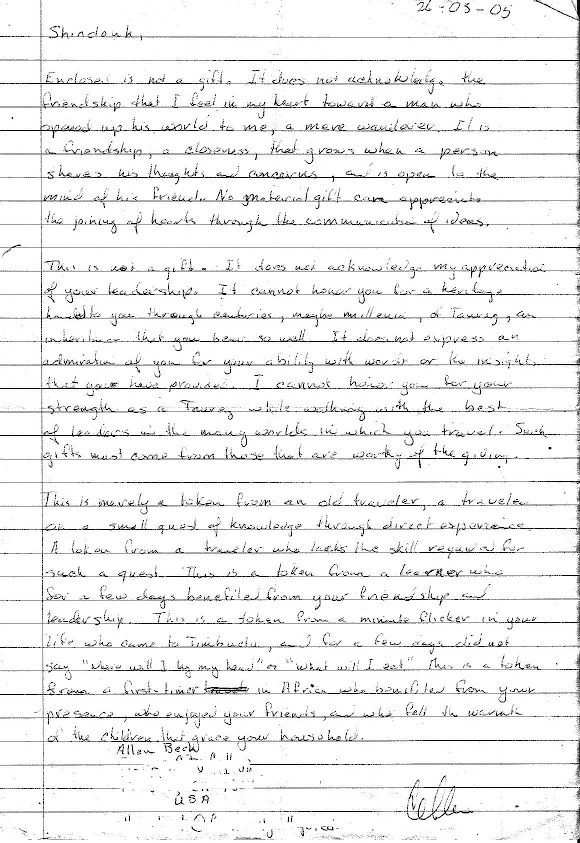 26-03-05
Shindouk,
Enclosed is not a gift. It does not acknowledge the
friendship that I feel in my heart toward a man who
opened up his world to me, a mere wanderer. It is
a friendship, a closeness, that grows when a person
shares his thoughts and concerns, and is open to the
mind of his friend. No material gift can appreciate
the joining of hearts through the communication of ideas.
This is not a gift. It does not acknowledge my appreciation
of your leadership. It cannot honor you for a heritage
handed to you through centuries, maybe millenia, of Tuareg, an
inheritance that you bear so well. It does not express an
admiration of you for your ability with words or the insight
that you have provided. I cannot honor you for your
strength as a Tuareg while walking with the best
of leaders in the many worlds in which you travel. Such
gifts must come from those that are worthy of the giving.
This is merely a token from an old traveler, a traveler
on a small quest of knowledge through direct experience.
A token from a traveler who lacks the skill required for
such a quest. This is a token from a learner who
for a few days benefited from your friendship and
leadership. This is a token from a minute flicker in your
life who came to Timbuctu, and for a few days did not
say "where will I lay my head" or "what will I eat". This is a token
from a first-timer in Africa who benefited from your
presence, who enjoyed your friends, and who felt the warmth
of the children that grace your household.
Allen Beck
USA